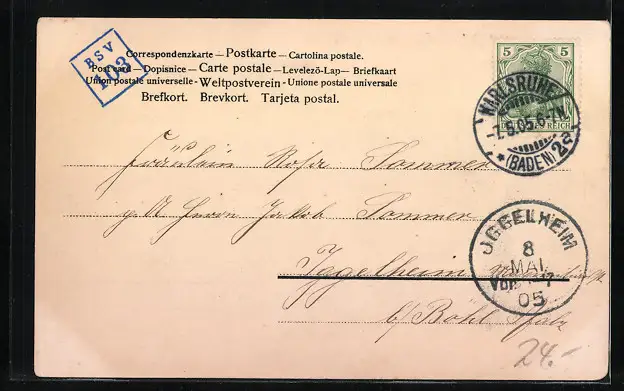 BSV
103
Correspondenzkarte — Postkarte — Cartolina postale.
Post card — Dopisnice — Carte postale — Levelező-Lap — Briefkaart
Union postale universelle - Weltpostverein - Unione postale universale
Brefkort. Brevkort. Tarjeta postal.
5 5
REICH
KARLSRUHE
-7.5.05.6-7N.
*(BADEN)2a
Fräulein Rosa Sommer
Herrn Jakob Sommer
Iggelheim
b/ Böhl Pfalz
IGGELHEIM
8
MAI
Vor.
05
24.-